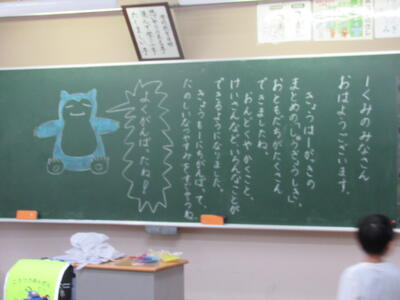 1くみのみなさん
おはようございます。
きょうは1がっきの
まとめの「しゅうぎょうしき」。
おともだちがたくさん
できましたね。
おんどくやかくこと、
けいさんなど、いろんなことが
できるようになりました。
きょうも1にちがんばって、
たのしいなつやすみをすごそうね。
よくがんばったね!